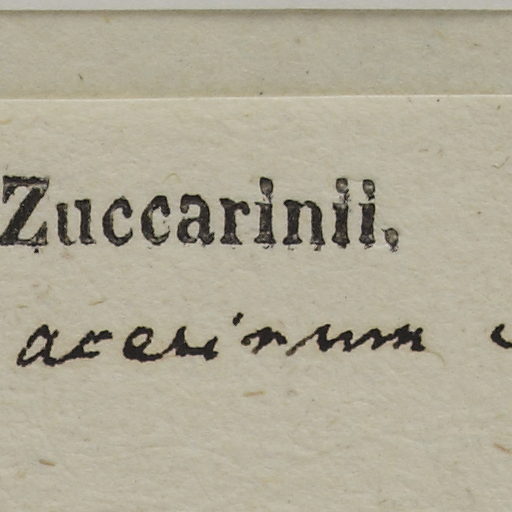 Zuccarinii,
acerinum